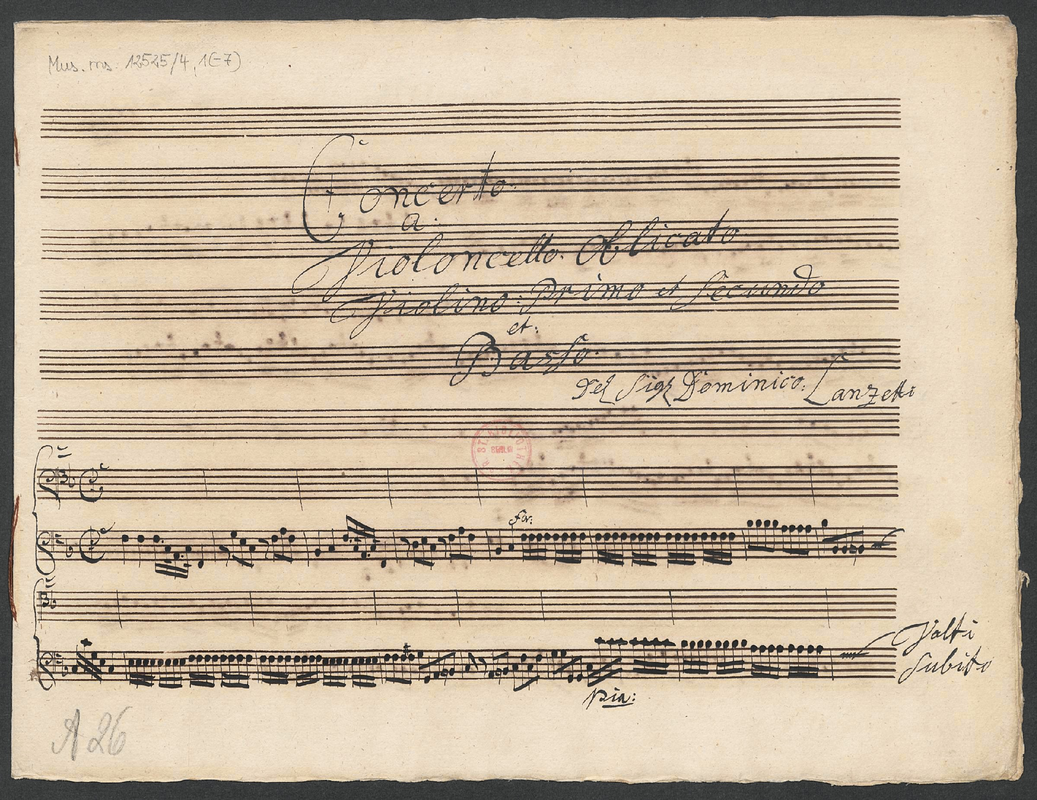 Mus. ms. 12525/4, 1(-7)
Concerto.
a.
Violoncello. Oblicato
Violino: Primo et Secundo
et:
Basso.
Del Sigr Dominico: Lanzetti
fo:
Volti
Subito
Pia:
A 26